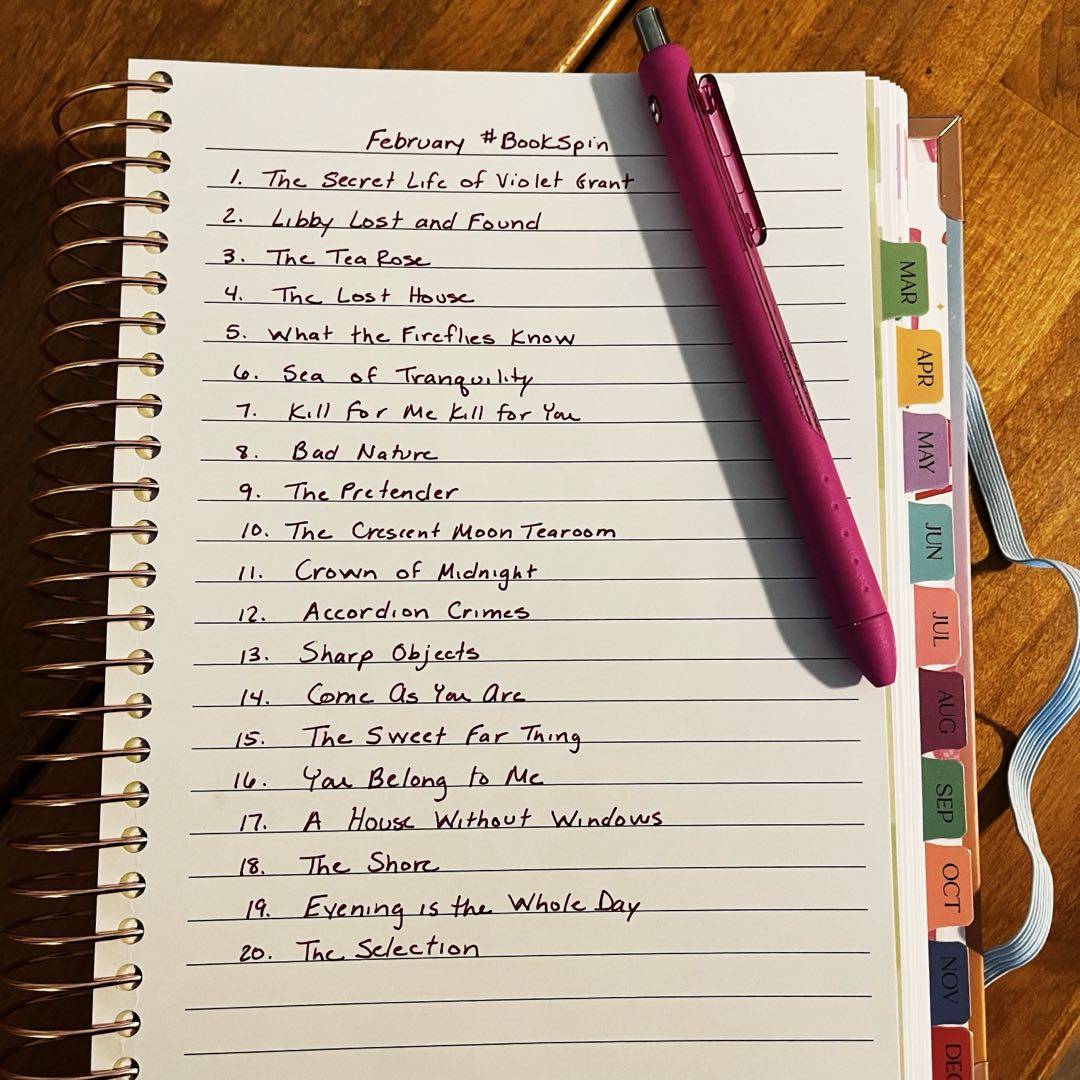 February #BookSpin
1. The Secret Life of Violet Grant
2. Libby Lost and Found
3. The Tea Rose
4. The Lost House
5. What the Fireflies Know
6. Sea of Tranquility
7. Kill for Me Kill for You
8. Bad Nature
9. The Pretender
10. The Crescent Moon Tearoom
11. Crown of Midnight
12. Accordion Crimes
13. Sharp Objects
14. Come As You Are
15. The Sweet Far Thing
16. You Belong to Me
17. A House Without Windows
18. The Shore
19. Evening is the Whole Day
20. The Selection
MAR
APR
MAY
JUN
JUL
AUG
SEP
OCT
NOV
DEC